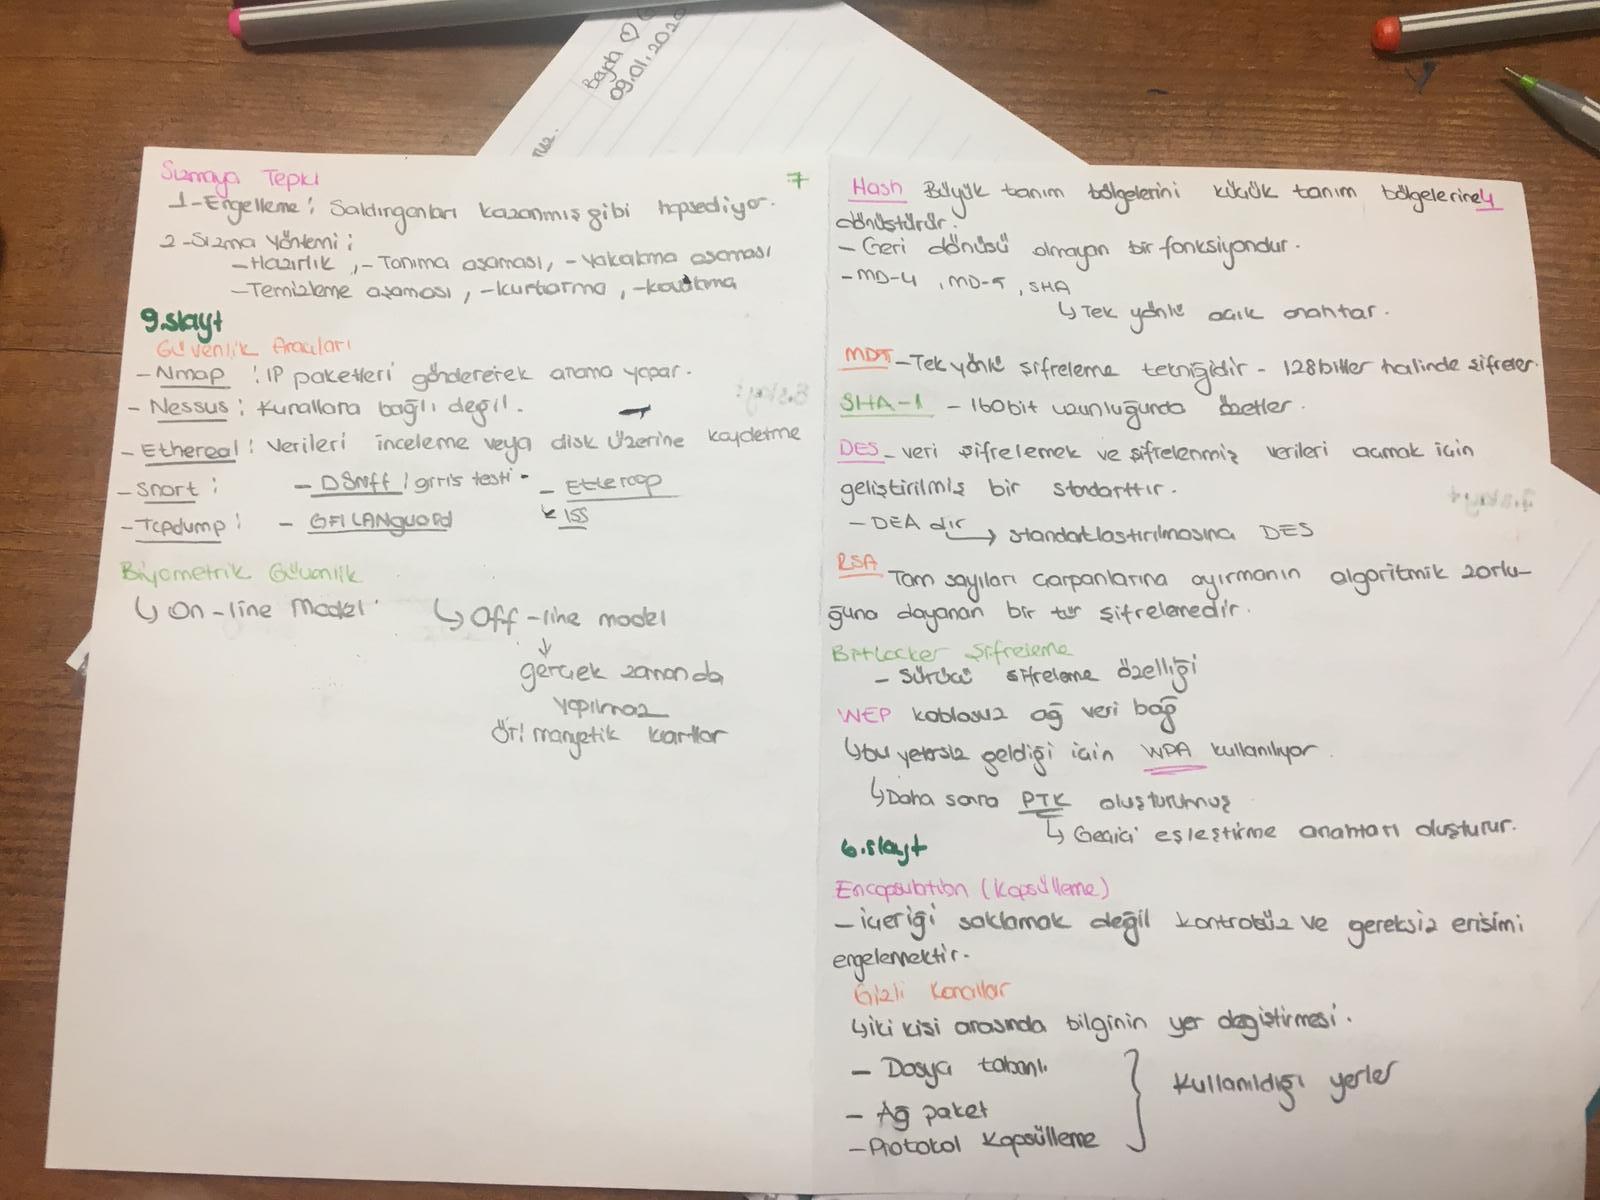 Beyda ♡
09.01.2020
Sızmaya Tepki
7
1-Engelleme: Saldırganları kazanmış gibi hapsediyor.
2-Sızma Yöntemi:
-Hazırlık, -Tanıma aşaması, -yakalama aşaması
-Temizleme aşaması, -kurtarma, -kovuşturma
9.slayt
Güvenlik Araçları
-Nmap: IP paketleri göndererek arama yapar.
-Nessus: Kurallara bağlı değil.
-Ethereal: Verileri inceleme veya disk üzerine kaydetme
-Snort: -DSniff / giriş testi -Ettercap
-Tcpdump: -GFI LANguard -ISS
Biyometrik Güvenlik
↳ On-line Model ↳ Off-line model
↓
gerçek zamanda
yapılmaz
Ör: manyetik kartlar
Hash Büyük tanım bölgelerini küçük tanım bölgelerine 4
dönüştürür.
-Geri dönüşü olmayan bir fonksiyondur.
-MD-4, MD-5, SHA
↳ Tek yönlü açık anahtar.
MD5 -Tek yönlü şifreleme tekniğidir - 128 bitler halinde şifreler.
SHA-1 - 160 bit uzunluğunda özetler.
DES - veri şifrelemek ve şifrelenmiş verileri açmak için
geliştirilmiş bir standarttır.
-DEA dır → standartlaştırılmasına DES
RSA Tam sayıları çarpanlarına ayırmanın algoritmik zorlu-
ğuna dayanan bir tür şifrelemedir.
BitLocker Şifreleme
- Sürücü şifreleme özelliği
WEP kablosuz ağ veri bağ
↳ bu yetersiz geldiği için WPA kullanılıyor.
↳ Daha sonra PTK oluşturulmuş
↳ Geçici eşleştirme anahtarı oluşturur.
6.slayt
Encapsulation (Kapsülleme)
-içeriği saklamak değil kontrolsüz ve gereksiz erişimi
engelemektir.
Gizli Kanallar
↳ iki kişi arasında bilginin yer değiştirmesi.
- Dosya tabanlı
- Ağ paket } Kullanıldığı yerler
-Protokol Kapsülleme